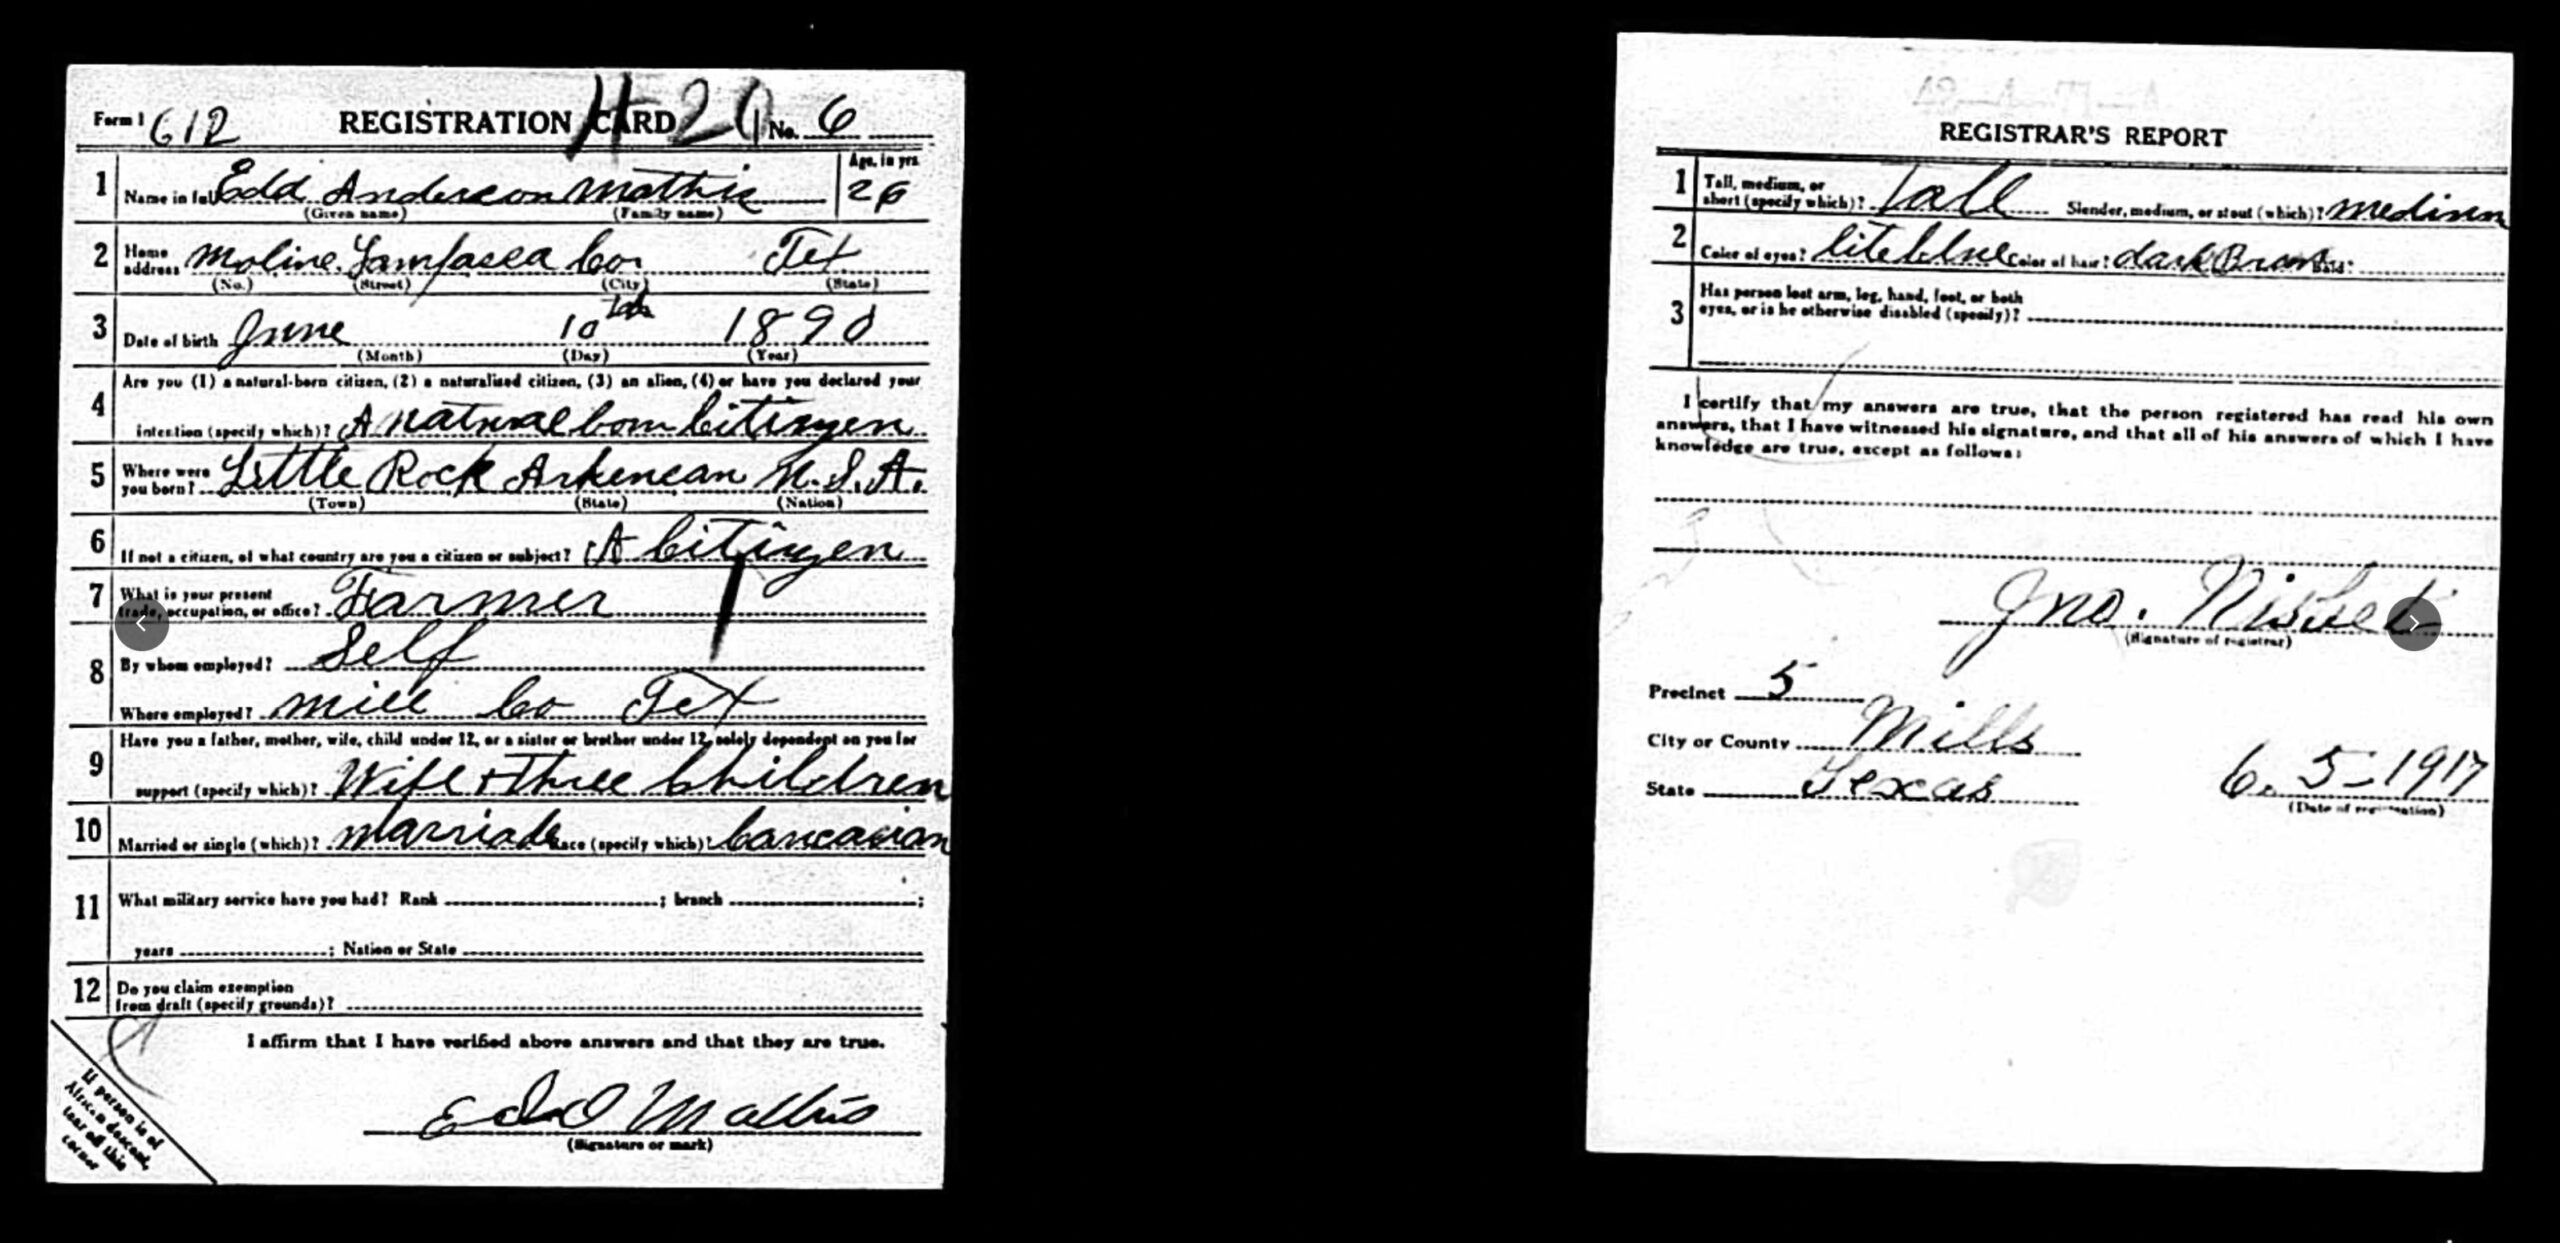 Form 1 612 REGISTRATION CARD No. 6
1 Name in full Edd Anderson Mathis Age, in yrs. 26
(Given name) (Family name)
2 Home address Moline. Lampasea Co. Tex
(No.) (Street) (City) (State)
3 Date of birth June 10th 1890
(Month) (Day) (Year)
4 Are you (1) a natural-born citizen, (2) a naturalized citizen, (3) an alien, (4) or have you declared your
intention (specify which)? A natural born Citizyen
5 Where were you born? Little Rock Arkencan U.S.A.
(Town) (State) (Nation)
6 If not a citizen, of what country are you a citizen or subject? A Citizyen
7 What is your present
trade, occupation, or office? Farmer
8 By whom employed? Self
Where employed? Mill Co Tex
9 Have you a father, mother, wife, child under 12, or a sister or brother under 12, solely dependent on you for
support (specify which)? Wife + Three Children
10 Married or single (which)? Marriade Race (specify which)? Caucasian
11 What military service have you had? Rank ; branch ;
years ; Nation or State
12 Do you claim exemption
from draft (specify grounds)?
I affirm that I have verified above answers and that they are true.
Edd Mathis
(Signature or mark)
If person is of
African descent,
tear off this
corner
REGISTRAR'S REPORT
1 Tall, medium, or
short (specify which)? Tall Slender, medium, or stout (which)? Medium
2 Color of eyes? lite blue Color of hair? dark Brown Bald?
3 Has person lost arm, leg, hand, foot, or both
eyes, or is he otherwise disabled (specify)?
I certify that my answers are true, that the person registered has read his own
answers, that I have witnessed his signature, and that all of his answers of which I have
knowledge are true, except as follows:
Jno. Nisbet
(Signature of registrar)
Precinct 5
City or County Mills
State Texas 6. 5-1917
(Date of registration)